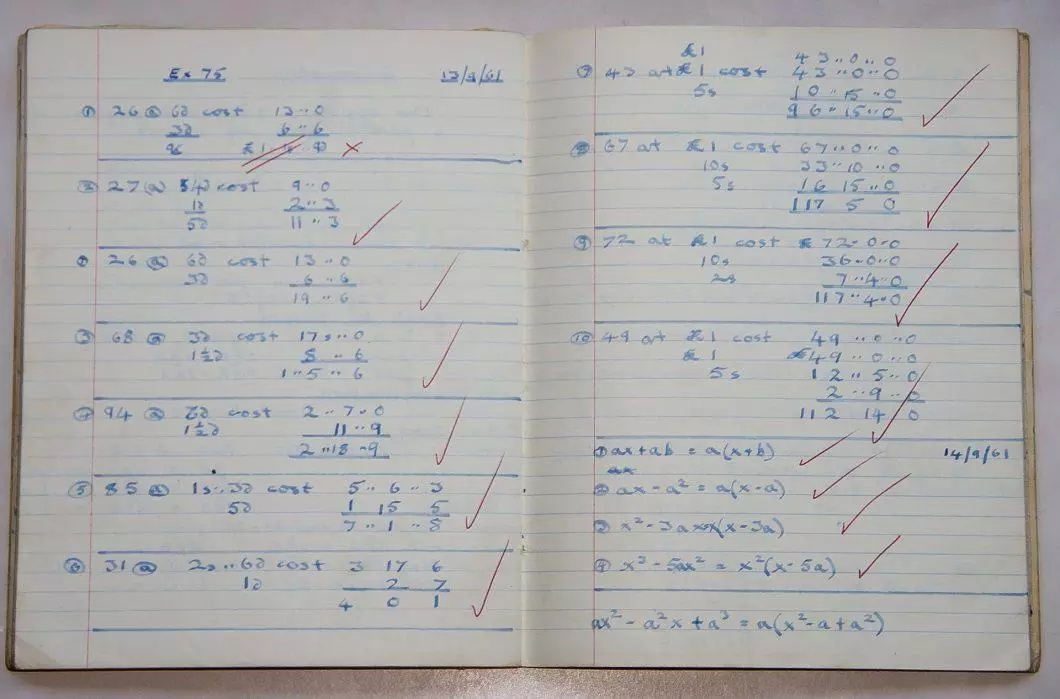 Ex 75 13/9/61
① 26 @ 6d cost 13 .. 0
3d 6 .. 6
② 27 @ 4d cost 9 .. 0
1d 2 .. 3
5d 11 .. 3
26 @ 6d cost 13 .. 0
3d 6 .. 6
19 .. 6
③ 68 @ 3d cost 17s .. 0
1½d 8 .. 6
1 .. 5 .. 6
④ 94 @ cost 2 .. 7 .. 0
1½d 11 .. 9
2 .. 18 .. 9
⑤ 85 @ 1s .. 3d cost 5 .. 6 .. 3
5d 1 15 5
7 .. 1 .. 8
⑥ 31 @ 2s .. 6d cost 3 17 6
1d 2 7
4 0 1
£1 43 .. 0 .. 0
⑦ 43 at £1 cost 43 .. 0 .. 0
5s 10 .. 15 .. 0
96 .. 15 .. 0
⑧ 67 at £1 cost 67 .. 0 .. 0
10s 33 .. 10 .. 0
5s 16 15 .. 0
117 5 0
⑨ 72 at £1 cost £72 . 0 . 0
10s 36 .. 0 .. 0
2s 7 .. 4 .. 0
117 .. 4 .. 0
⑩ 49 at £1 cost 49 .. 0 .. 0
£1 £49 .. 0 .. 0
5s 12 .. 5 .. 0
2 .. 9 .. 0
112 14 0
① ax + ab = a(x+b) 14/9/61
ax
② ax - a² = a(x-a)
③ x² - 3ax x(x-3a)
④ x³ - 5ax² = x²(x-5a)
ax² - a²x + a³ = a(x²-a+a²)